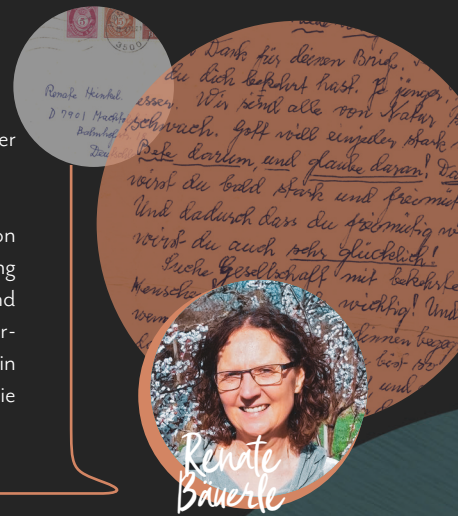 er
on
ng
nd
er-
in
ie
5
3800
Renate Henkel
D 7901
Bahnhof
Deut
Dank für deinen Brief.
du dich bekehrt hast. Je jünger,
essen. Wir sind alle von Natur
schwach. Gott will einjeder stark
Bete darum, und glaube daran! Da
wirst du bald stark und freimüt
Und dadurch dass du freimütig wi
wirst du auch sehr glücklich!
Suche Gesellschaft mit bekehrte
Mensche wichtig! Und
wenn dinnen bege
bist so
und
Renate
Bäuerle